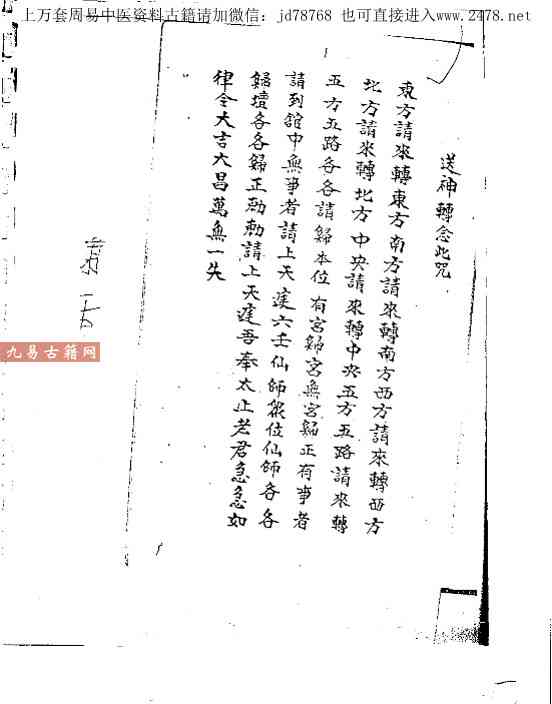 上万套周易中医资料古籍请加微信：jd78768 也可直接进入www.2478.net
送神轉念此咒
東方請來轉東方南方請來轉南方西方請來轉西方
北方請來轉北方中央請來轉中央五方五路請來轉
五方五路各各請歸本位有宮歸宮無宮歸正有事者
請到舘中無事者請上天庭六壬仙師眾位仙師各各
歸壇各各歸正勅勅請上天庭吾奉太上老君急急如
律令大吉大昌萬無一失
九易古籍网